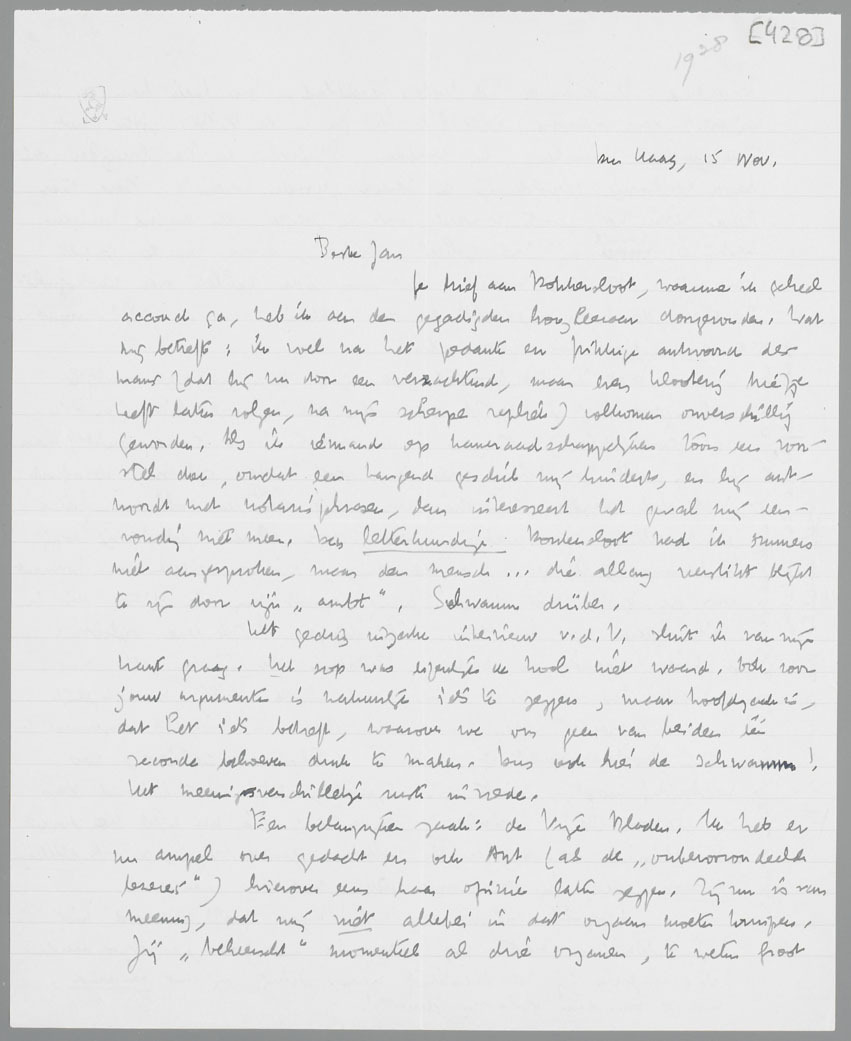 [428]
1938
Den Haag, 15 Nov.
Beste Jan
Je brief aan Borkensloot, waarmee ik geheel
accoord ga, heb ik aan den gegadigden hoogleeraar doorgezonden. Wat
mij betreft: ik wel na het pedante en antwoord der
maar (dat hij nu door een verzachtend, maar even briefje
heeft laten volgen, na mijn scherpe repliek) volkomen onverschillig
geworden. Als ik iemand op kameraadschappelijken toon een voor-
stel doe, omdat een hangend geschil mij hindert, en hij ant-
woordt met notarisphrasen, dan interesseert het geval mij een-
voudig niet meer. Den letterkundige had ik immers
niet aangesproken, maar den mensch... die allang verstikt blijkt
te zijn door zijn „ambt". Schwamm drüber.
Het gedrag inzake interview v.d.V. sluit ik van mijn
kant graag. Het sop was eigenlijk de kool niet waard. Ook voor
jouw argumenten is natuurlijk iets te zeggen, maar hoofdzaak is,
dat het iets betreft, waarover we ons geen van beiden één
seconde behoeven druk te maken. Dus ook hier de schwamm!
Het meeningsverschilletje ruste in vrede.
Een belangrijker zaak: de Vrije Bladen. Ik heb er
nu ampel over gedacht en ook Ant (als de „onbevooroordeelde
lezeres") hierover eens haar opinie laten zeggen. Zij nu is van
meening, dat wij niet allebei in dat orgaan moeten kruipen.
Jij „beheerscht" momenteel al drie organen, te weten Groot